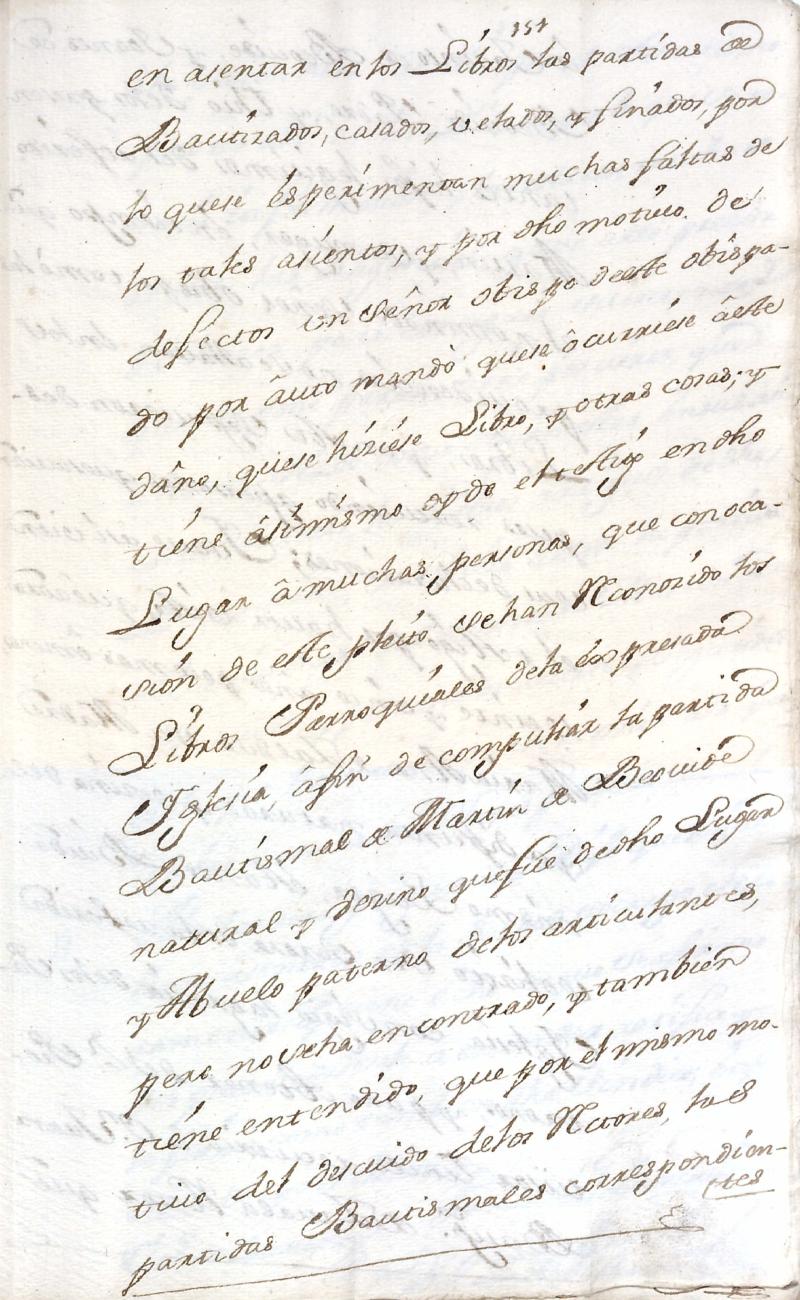 154
en asentar en los Libros las partidas de
Bautizados, casados, velados, y finados, por
lo quese êsperimentan muchas faltas de
los tales asientos, y por dho motivo de
defectos un señor obispo deeste obispa-
do por âuto mandò quese ôcurriese âeste
daño, quese hiziese Libro, y otras cosas; y
tiene âsimismo oydo el testigo en dho
Lugar â muchas personas, que con oca-
sion de este pleito sehan Rconozido los
Libros Parroquiales dela êspresada
Iglesia, âfin de compulsar la partida
Bautismal de Martin de Beovide
natural y vezino quefue dedho Lugar
y Abuelo paterno delos articulantes,
pero noseha encontrado, y tambien
tiene entendido, que por el mismo mo-
tivo del descuido delos Rctores, las
partidas Bautismales correspondien-
tes